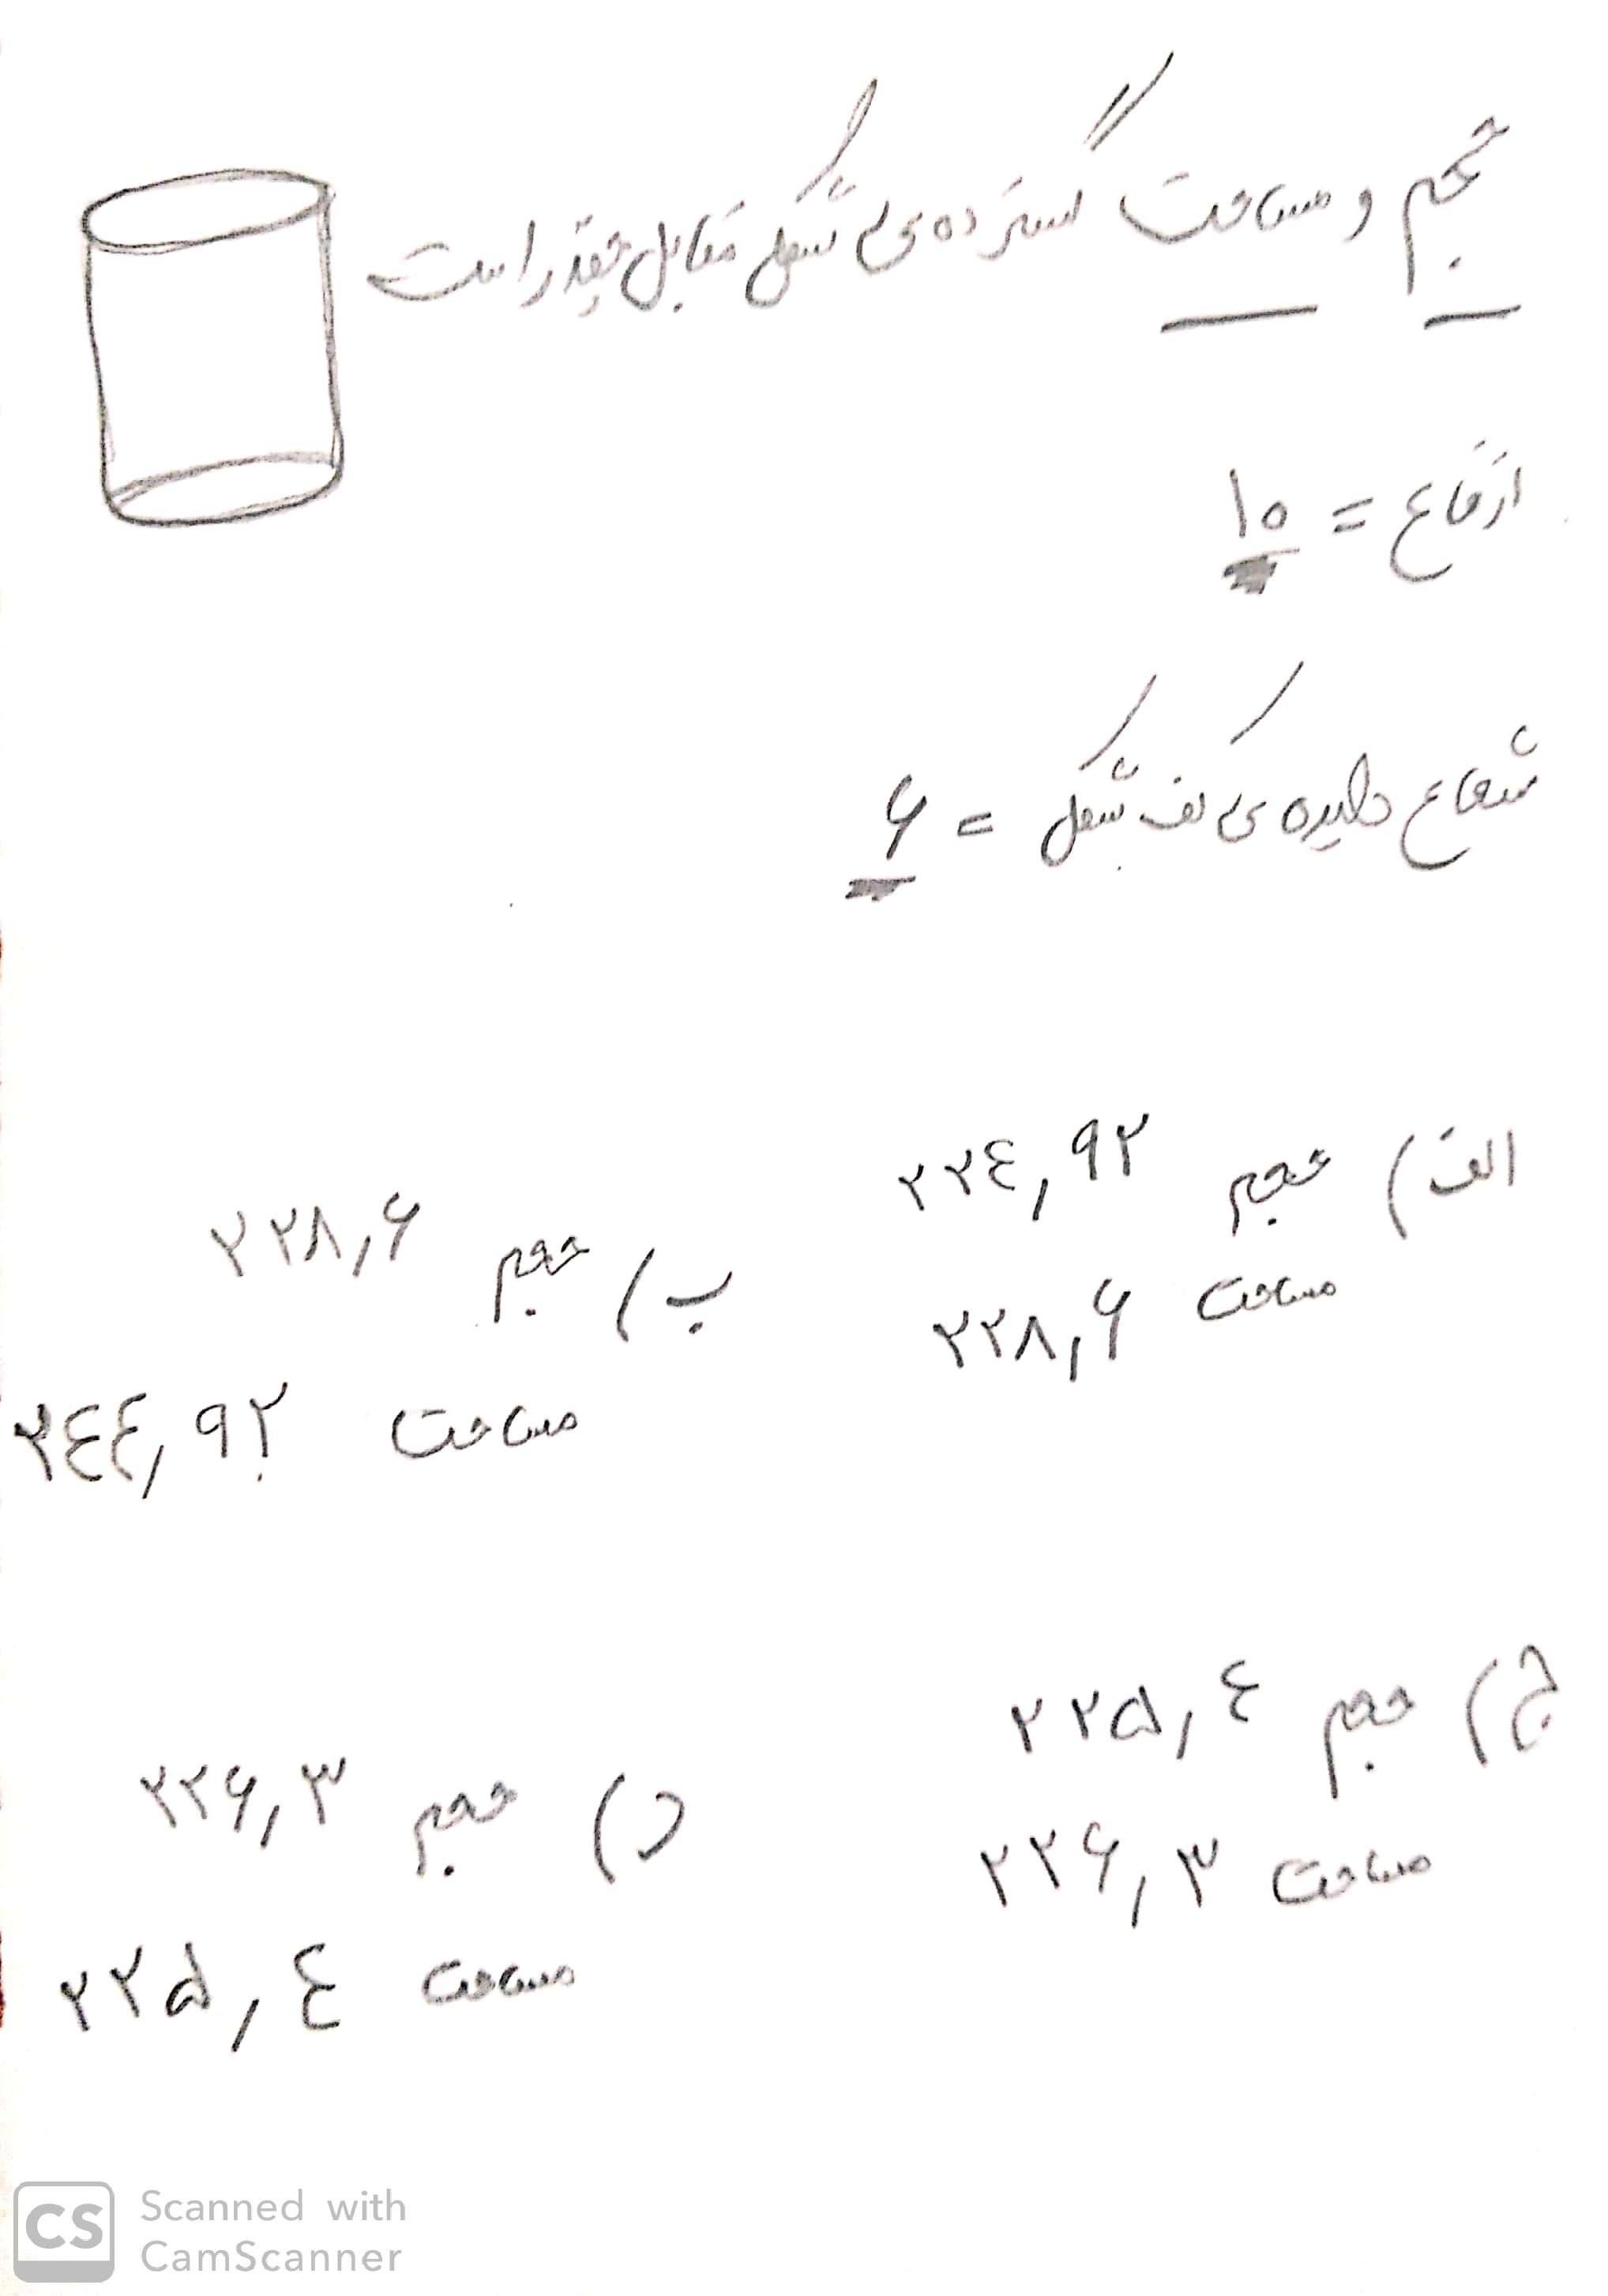 حجم و مساحت گسترده ی شکل مقابل چقدر است
ارتفاع = ۱۰
شعاع دایره ی کف شکل = ۶
الف) حجم ۲۲٤,۹۲
مساحت ۲۲۸,۶
ب) حجم ۲۲۸,۶
مساحت ۲٤٤,۹۲
ج) حجم ۲۲۵,٤
مساحت ۲۲۶,۳
د) حجم ۲۲۶,۳
مساحت ۲۲۵,٤
CS
Scanned with
CamScanner